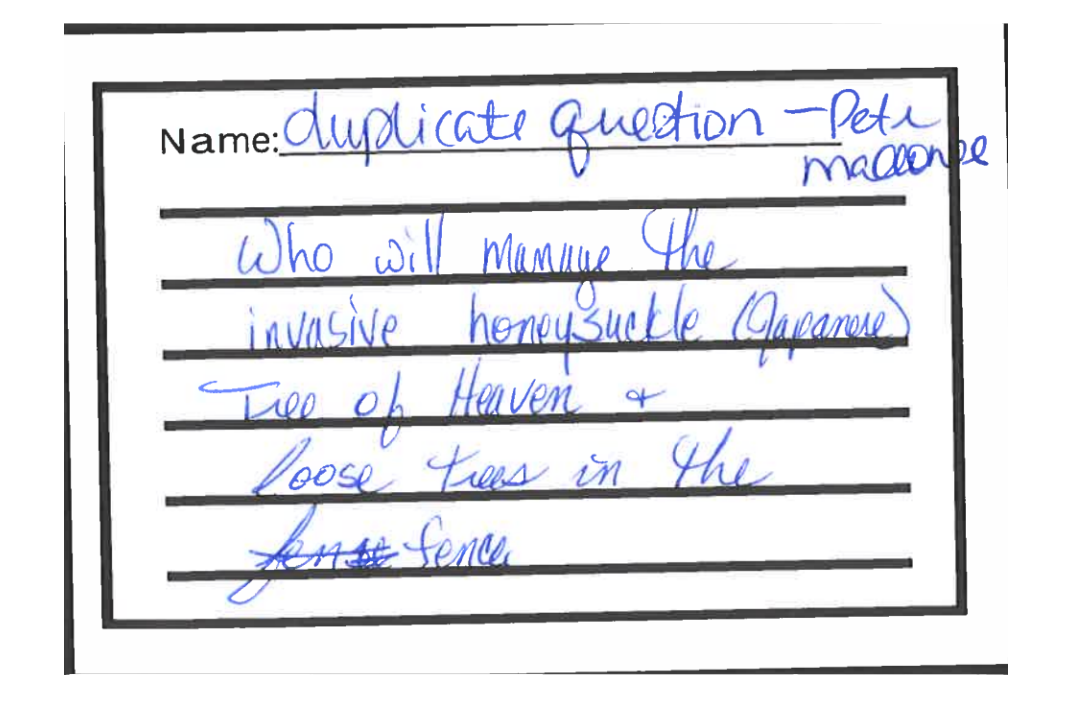 Name: duplicate question - Pete
Who will manage the
invasive honeysuckle (Japanese)
Tree of Heaven +
loose trees in the
fense fence